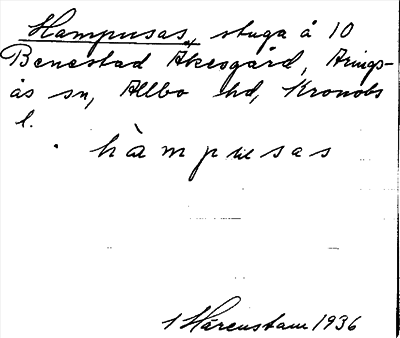 Hampusas, stuga å 10
Benestad Åkesgård, Arings-
ås sn, Allbo hd, Kronobs
l.
hampusas
1 Hårenstam 1936